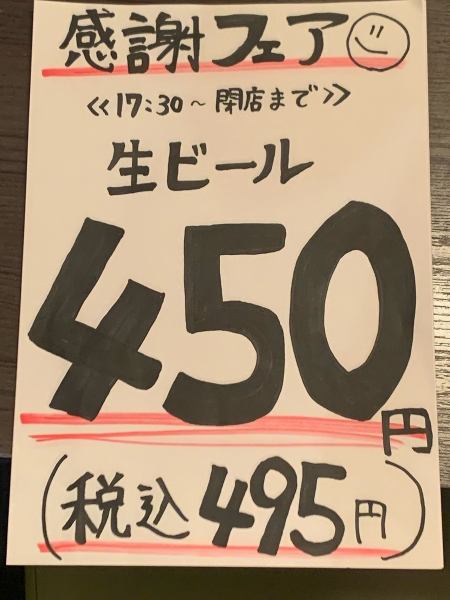 感謝フェア
<<17:30~閉店まで>>
生ビール
450円
(税込495円)